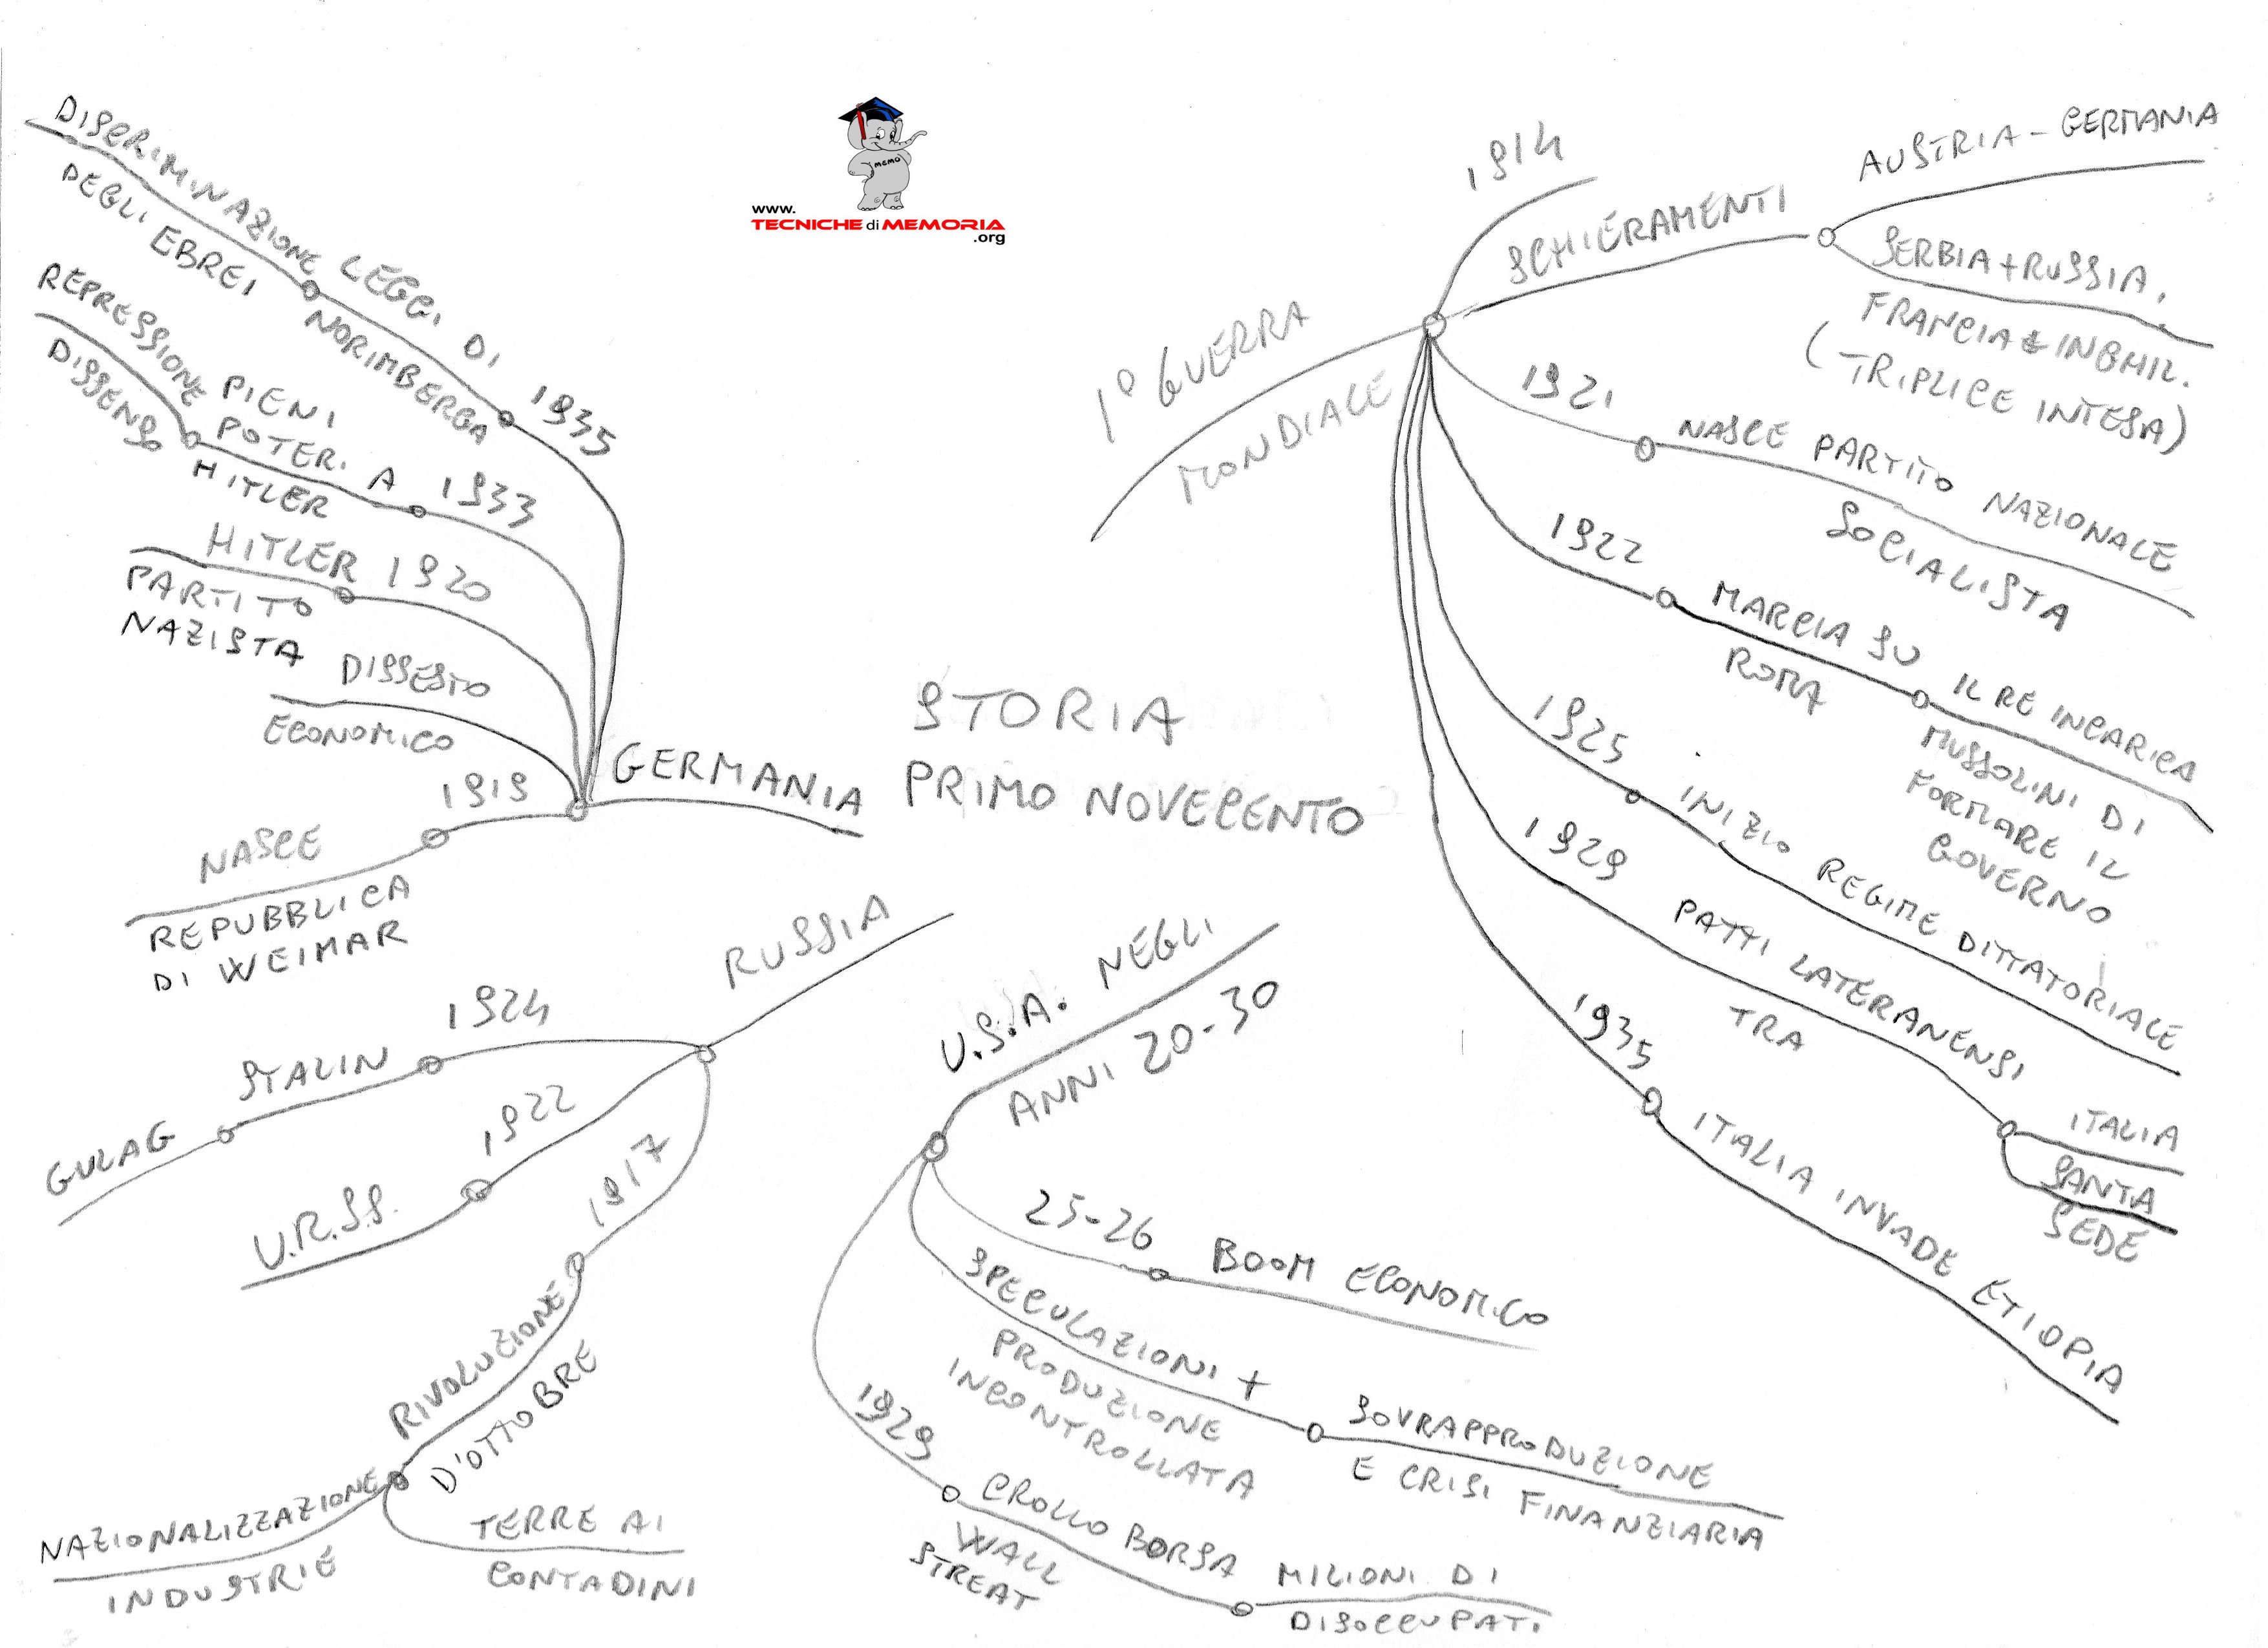 MEMO
www.
TECNICHE di MEMORIA
.org
STORIA
PRIMO NOVECENTO
1° GUERRA
MONDIALE
1914
SCHIERAMENTI
AUSTRIA - GERMANIA
SERBIA + RUSSIA,
FRANCIA & INGHIL.
(TRIPLICE INTESA)
1921
NASCE PARTITO NAZIONALE
SOCIALISTA
1922
MARCIA SU
ROMA
IL RE INCARICA
MUSSOLINI DI
FORMARE IL
GOVERNO
1925
INIZIO REGIME DITTATORIALE
1929
PATTI LATERANENSI
TRA
ITALIA
SANTA
SEDE
1935
ITALIA INVADE ETIOPIA
U.S.A. NEGLI
ANNI 20-30
25-26
BOOM ECONOMICO
SPECULAZIONI +
PRODUZIONE
INCONTROLLATA
SOVRAPPRODUZIONE
E CRISI FINANZIARIA
1929
CROLLO BORSA
WALL
STREAT
MILIONI DI
DISOCCUPATI
RUSSIA
1917
RIVOLUZIONE
D'OTTOBRE
TERRE AI
CONTADINI
NAZIONALIZZAZIONE
INDUSTRIE
1922
U.R.S.S.
1924
STALIN
GULAG
GERMANIA
1919
NASCE
REPUBBLICA
DI WEIMAR
DISSESTO
ECONOMICO
1920
HITLER
PARTITO
NAZISTA
1933
PIENI
POTERI A
HITLER
REPRESSIONE
DISSENSO
1935
LEGGI DI
NORIMBERGA
DISCRIMINAZIONE
DEGLI EBREI